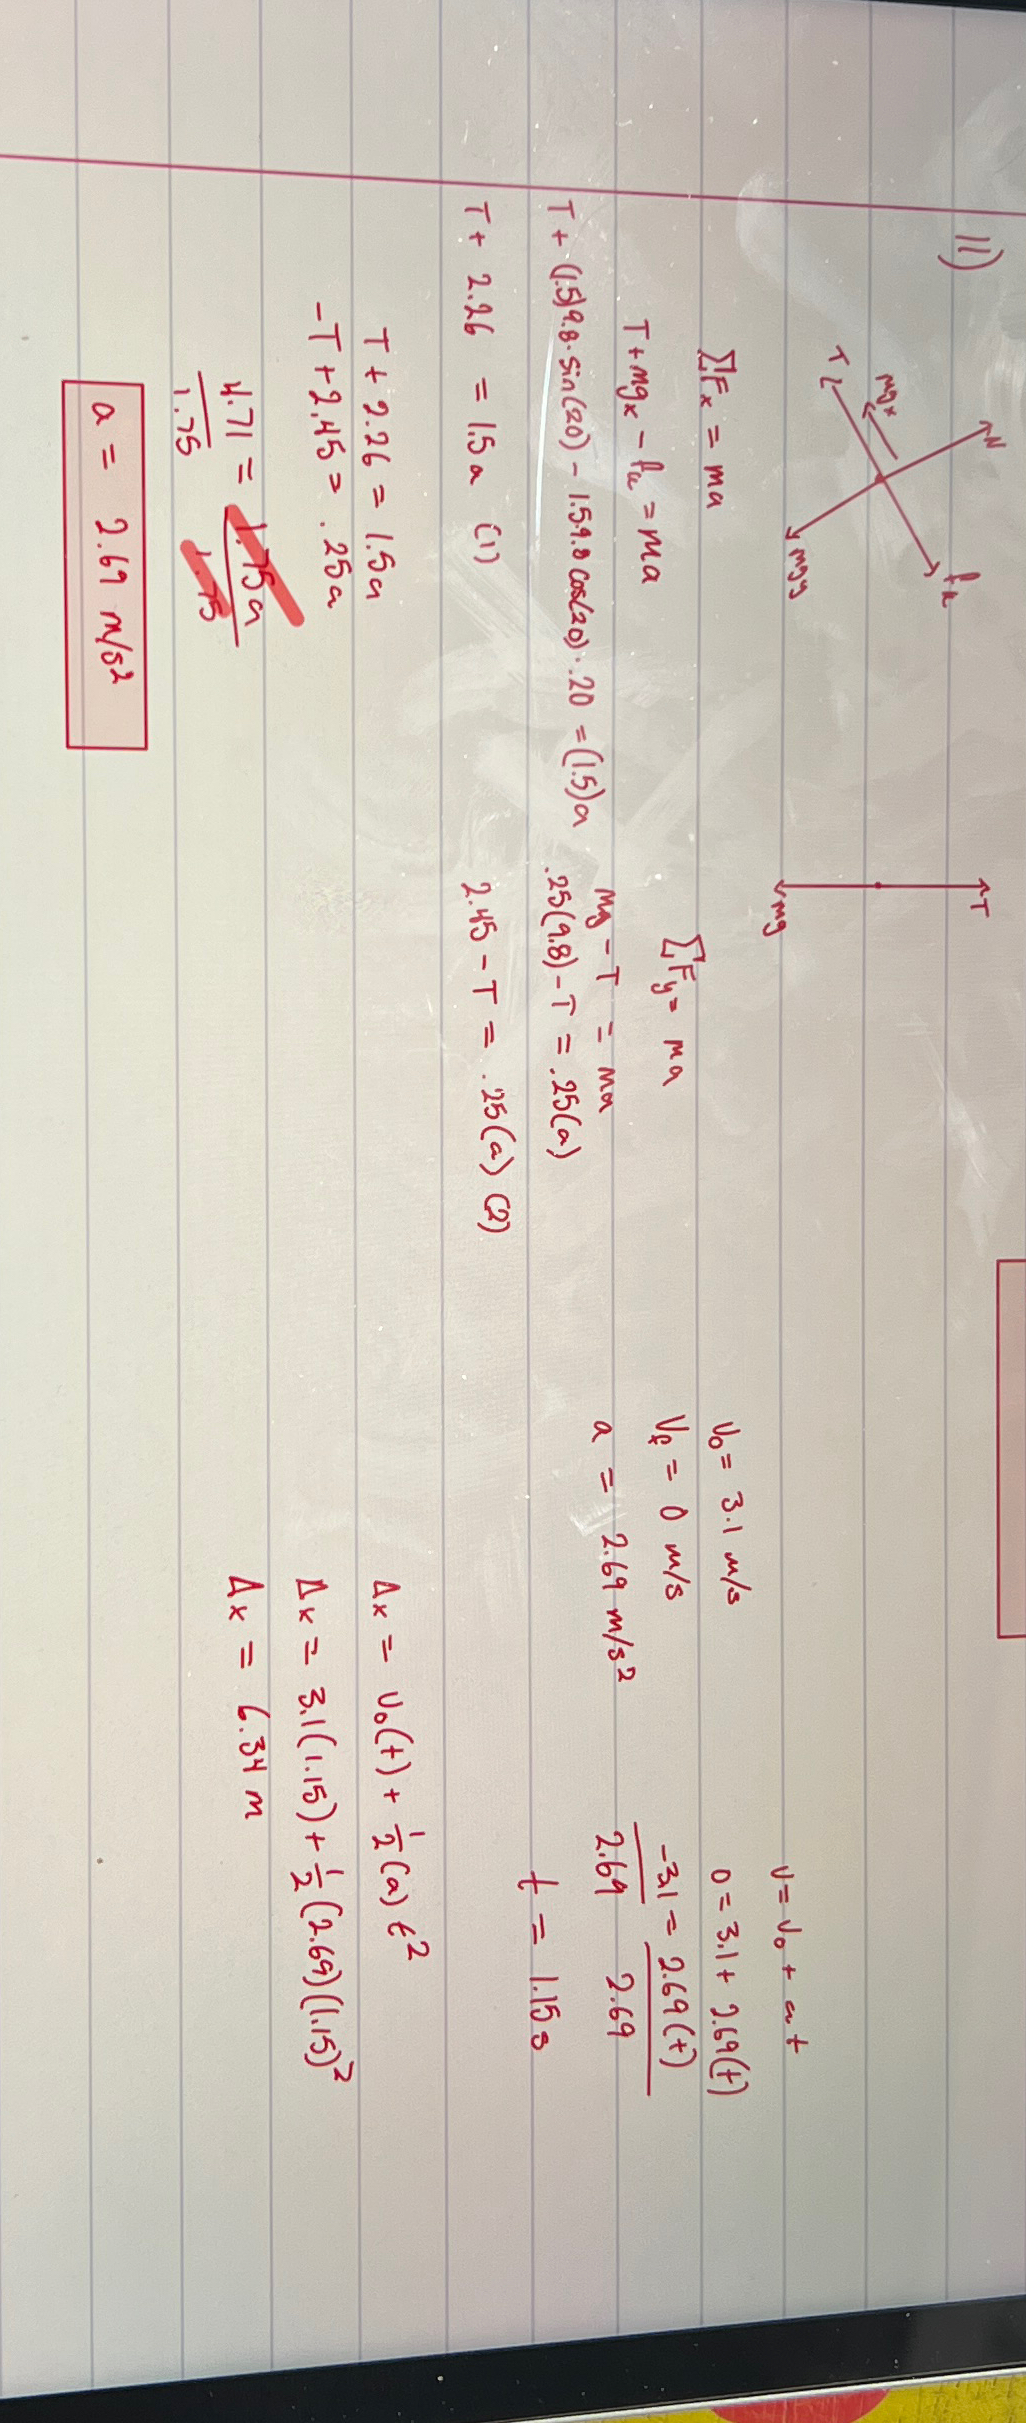 11)
N
fk
mgx
T
mgy
T
mg
ΣFx = ma
T + mgx - fk = ma
T + (1.5)9.8·sin(20) - 1.5·9.8 cos(20)·.20 = (1.5)a
T + 2.26 = 1.5a (1)
T + 2.26 = 1.5a
-T + 2.45 = .25a
4.71 = 1.75a
1.75 1.75
a = 2.69 m/s²
ΣFy = ma
mg - T = ma
.25(9.8) - T = .25(a)
2.45 - T = .25(a) (2)
v₀ = 3.1 m/s
Vf = 0 m/s
a = 2.69 m/s²
v = v₀ + at
0 = 3.1 + 2.69(t)
-3.1 = 2.69(t)
2.69 2.69
t = 1.15s
Δx = v₀(t) + ½(a)t²
Δx = 3.1(1.15) + ½(2.69)(1.15)²
Δx = 6.34 m